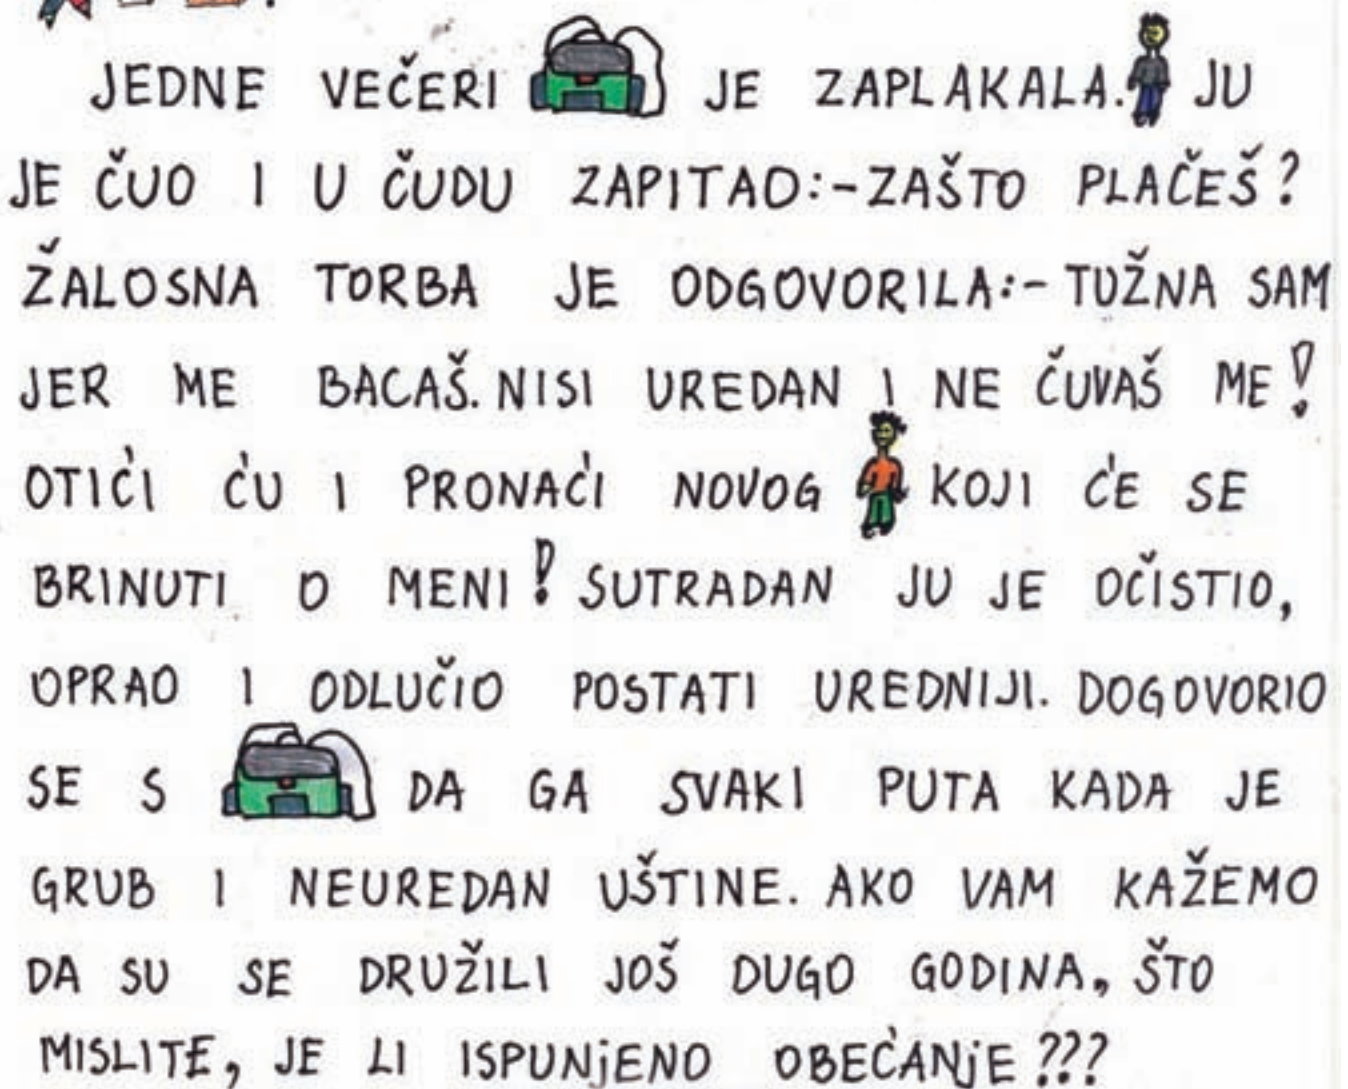 JEDNE VEČERI JE ZAPLAKALA. JU
JE ČUO I U ČUDU ZAPITAO:-ZAŠTO PLAČEŠ?
ŽALOSNA TORBA JE ODGOVORILA:-TUŽNA SAM
JER ME BACAŠ. NISI UREDAN I NE ČUVAŠ ME!
OTIĆI ĆU I PRONAĆI NOVOG KOJI ĆE SE
BRINUTI O MENI! SUTRADAN JU JE OČISTIO,
OPRAO I ODLUČIO POSTATI UREDNIJI. DOGOVORIO
SE S DA GA SVAKI PUTA KADA JE
GRUB I NEUREDAN UŠTINE. AKO VAM KAŽEMO
DA SU SE DRUŽILI JOŠ DUGO GODINA, ŠTO
MISLITE, JE LI ISPUNjENO OBEĆANjE???